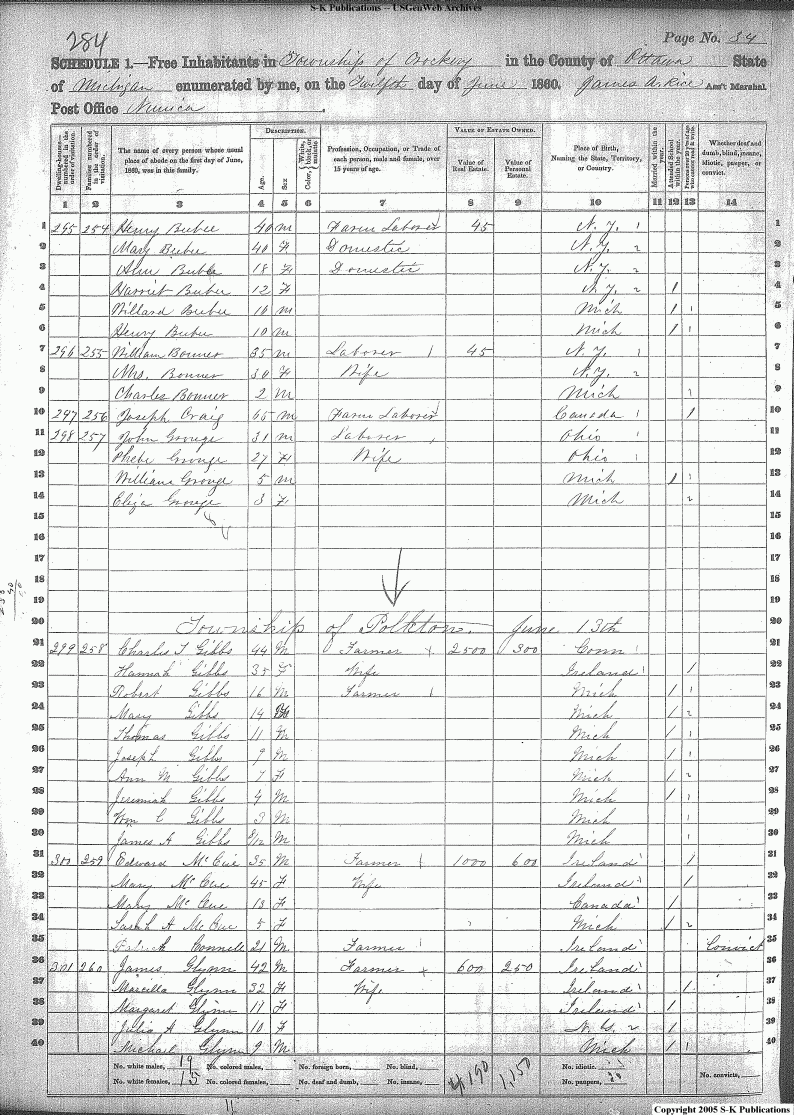 S-K Publications -- USGenWeb Archives
284
Page No. 34
SCHEDULE 1.—Free Inhabitants in Township of Crockery in the County of Ottawa State
of Michigan enumerated by me, on the Twelfth day of June 1860. James A. Rice Ass't Marshal
Post Office Nunica.
DESCRIPTION. VALUE OF ESTATE OWNED.
Dwelling-houses numbered in the order of visitation. Families numbered in the order of visitation. The name of every person whose usual place of abode on the first day of June, 1860, was in this family. Age. Sex. Color, White, black, or mulatto. Profession, Occupation, or Trade of each person, male and female, over 15 years of age. Value of Real Estate. Value of Personal Estate. Place of Birth, Naming the State, Territory, or Country. Married within the year. Attended School within the year. Persons over 20 y'rs of age who cannot read & write. Whether deaf and dumb, blind, insane, idiotic, pauper, or convict.
1 2 3 4 5 6 7 8 9 10 11 12 13 14
1 295 254 Henry Buber 40 M Farm Laborer 1 45 N.Y. 1 1
2 Mary Buber 40 F Domestic N.Y. 2 2
3 Buber 18 F Domestic N.Y. 2 3
4 Harriet Buber 12 F N.Y. 2 / 4
5 Willard Buber 10 M Mich / 1 5
6 Henry Buber 10 M Mich / 1 6
7 296 255 William Bonner 35 M Laborer 1 45 N.Y. 1 7
8 Mrs. Bonner 30 F Wife N.Y. 2 8
9 Charles Bonner 2 M Mich 1 9
10 297 256 Joseph Craig 65 M Farm Laborer Canada 1 / 10
11 298 257 John Grouge 31 M Laborer 1 Ohio 1 11
12 Phebe Grouge 27 F Wife Ohio 1 12
13 William Grouge 5 M Mich / 1 13
14 Eliza Grouge 3 F Mich 2 14
15 15
16 16
17 17
18 18
19 19
20 Township of Polkton. June 13th 20
21 299 258 Charles T Gibbs 44 M Farmer + 2500 300 Conn 1 21
22 Hannah Gibbs 35 F Wife Ireland 1 / 22
23 Robert Gibbs 16 M Farmer 1 Mich / 1 23
24 Mary Gibbs 14 F Mich / 2 24
25 Thomas Gibbs 11 M Mich / 1 25
26 Joseph Gibbs 9 M Mich / 1 26
27 Ann M Gibbs 7 F Mich / 2 27
28 Jeremiah Gibbs 4 M Mich / 1 28
29 Wm C Gibbs 3 M Mich 1 29
30 James A Gibbs M Mich 1 30
31 300 259 Edward McCue 35 M Farmer + 1000 600 Ireland 1 / 31
32 Mary McCue 45 F Wife Ireland 1 / 32
33 Mary McCue 13 F Canada 1 / 33
34 Sarah A McCue 5 F Mich / 2 34
35 Patrick Connell 21 M Farmer 1 Ireland 1 Convict 35
36 301 260 James Glynn 42 M Farmer + 600 250 Ireland 1 36
37 Marcella Glynn 32 F Wife Ireland 1 / 37
38 Margaret Glynn 11 F Ireland 1 / 38
39 Julia A Glynn 10 F N.Y. 2 / 39
40 Michael Glynn 9 M Mich / 1 40
No. white males, 19 No. colored males, No. foreign born, No. blind, 4,190 1,150 No. idiotic, No. convicts,
No. white females, 15 No. colored females, No. deaf and dumb, No. insane, No. paupers,
Copyright 2005 S-K Publications